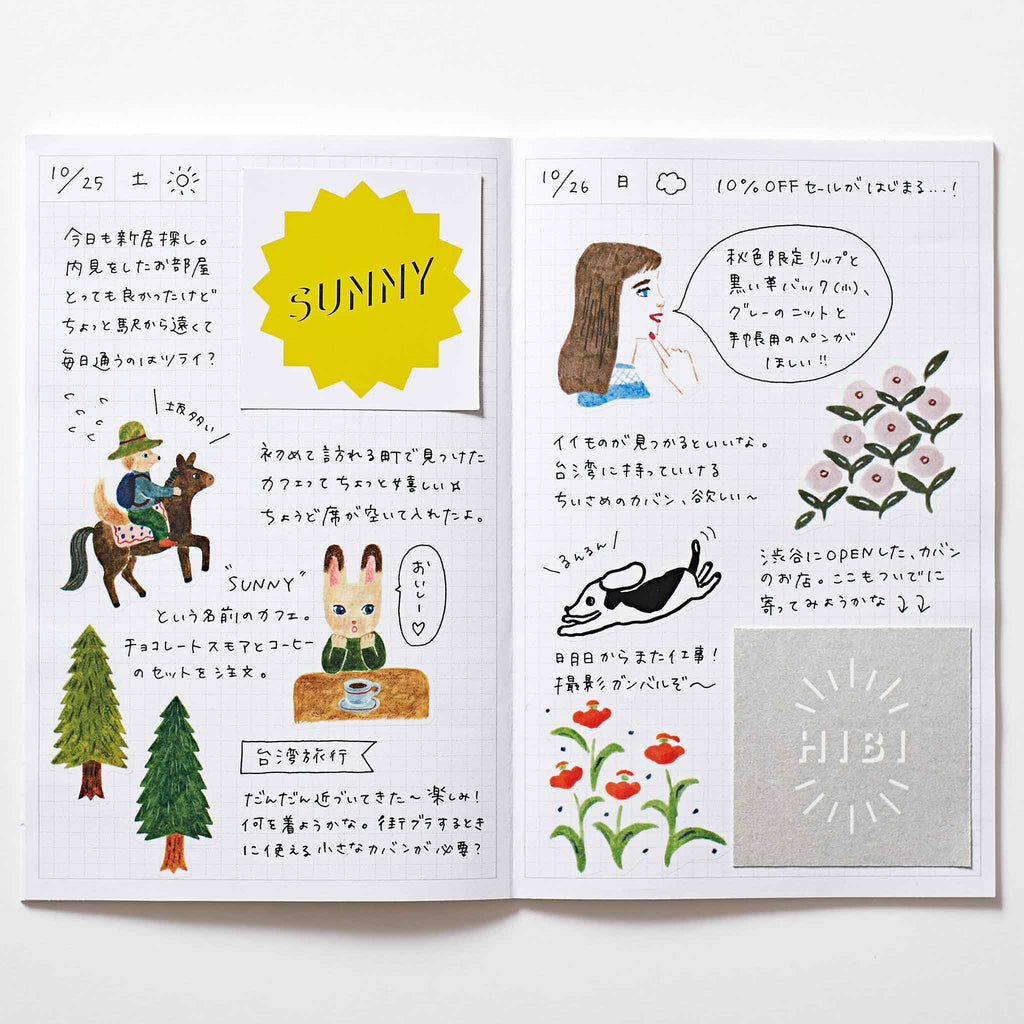 10/25 土
SUNNY
今日も新居探し。
内見をしたお部屋
とっても良かったけど
ちょっと駅から遠くて
毎日通うのはツライ?
坂多い
初めて訪れる町で見つけた
カフェってちょっと嬉しい☆
ちょうど席が空いて入れたよ。
"SUNNY"
という名前のカフェ。
チョコレートスモアとコーヒー
のセットを注文。
おいしー♡
台湾旅行
だんだん近づいてきた〜楽しみ!
何を着ようかな。街ブラするとき
に使える小さなカバンが必要?
10/26 日
10%OFFセールがはじまる...!
秋色限定リップと
黒い革バック(小)、
グレーのニットと
手帳用のペンが
ほしい!!
イイものが見つかるといいな。
台湾に持っていける
ちいさめのカバン、欲しい〜
るんるん
渋谷にOPENした、カバン
のお店。ここもついでに
寄ってみようかな
明日からまた仕事!
撮影ガンバルぞ〜
HIBI